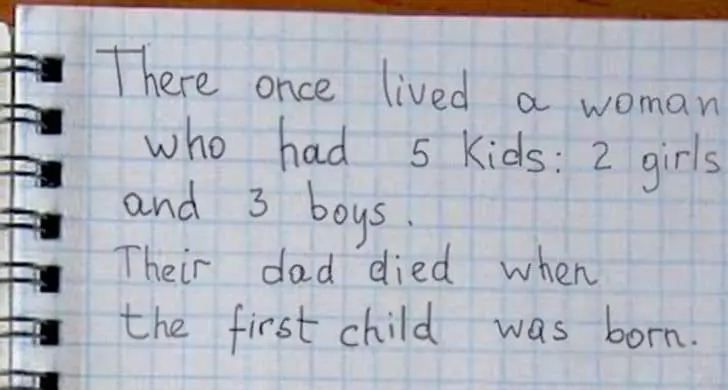 There once lived a woman
who had 5 Kids: 2 girls
and 3 boys.
Their dad died when
the first child was born.